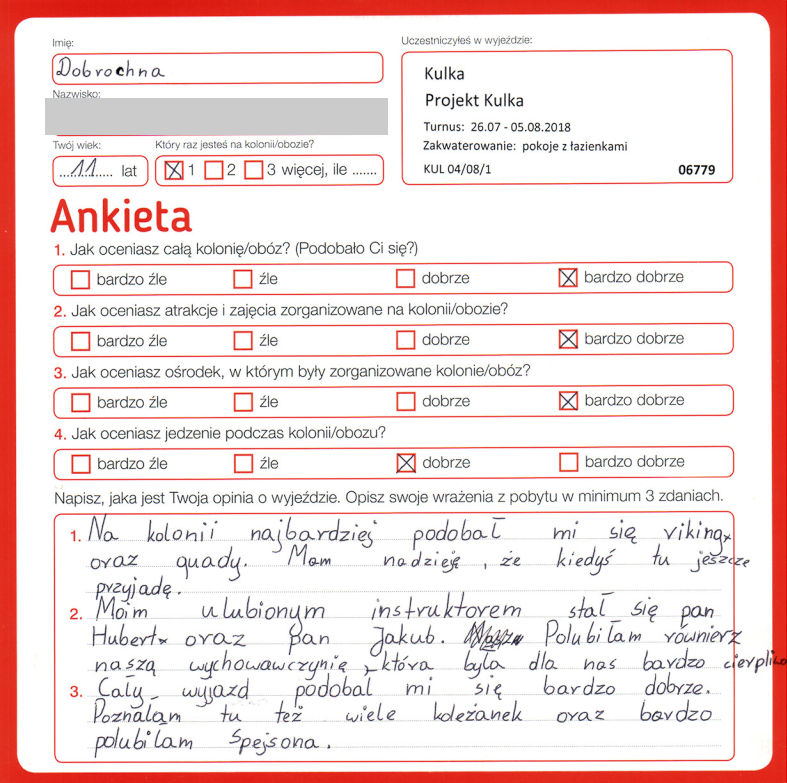 Imię:
Dobrochna
Nazwisko:
Twój wiek:
...11..... lat
Który raz jesteś na kolonii/obozie?
1 2 3 więcej, ile .......
Uczestniczyłeś w wyjeździe:
Kulka
Projekt Kulka
Turnus: 26.07 - 05.08.2018
Zakwaterowanie: pokoje z łazienkami
KUL 04/08/1 06779
Ankieta
1. Jak oceniasz całą kolonię/obóz? (Podobało Ci się?)
bardzo źle źle dobrze bardzo dobrze
2. Jak oceniasz atrakcje i zajęcia zorganizowane na kolonii/obozie?
bardzo źle źle dobrze bardzo dobrze
3. Jak oceniasz ośrodek, w którym były zorganizowane kolonie/obóz?
bardzo źle źle dobrze bardzo dobrze
4. Jak oceniasz jedzenie podczas kolonii/obozu?
bardzo źle źle dobrze bardzo dobrze
Napisz, jaka jest Twoja opinia o wyjeździe. Opisz swoje wrażenia z pobytu w minimum 3 zdaniach.
1. Na kolonii najbardziej podobał mi się viking
oraz quady. Mam nadzieję, że kiedyś tu jeszcze
przyjadę.
2. Moim ulubionym instruktorem stał się pan
Hubert oraz pan Jakub. Polubiłam równierz
naszą wychowawczynię, która była dla nas bardzo
3. Cały wyjazd podobał mi się bardzo dobrze.
Poznałam tu też wiele koleżanek oraz bardzo
polubiłam Spejsona.